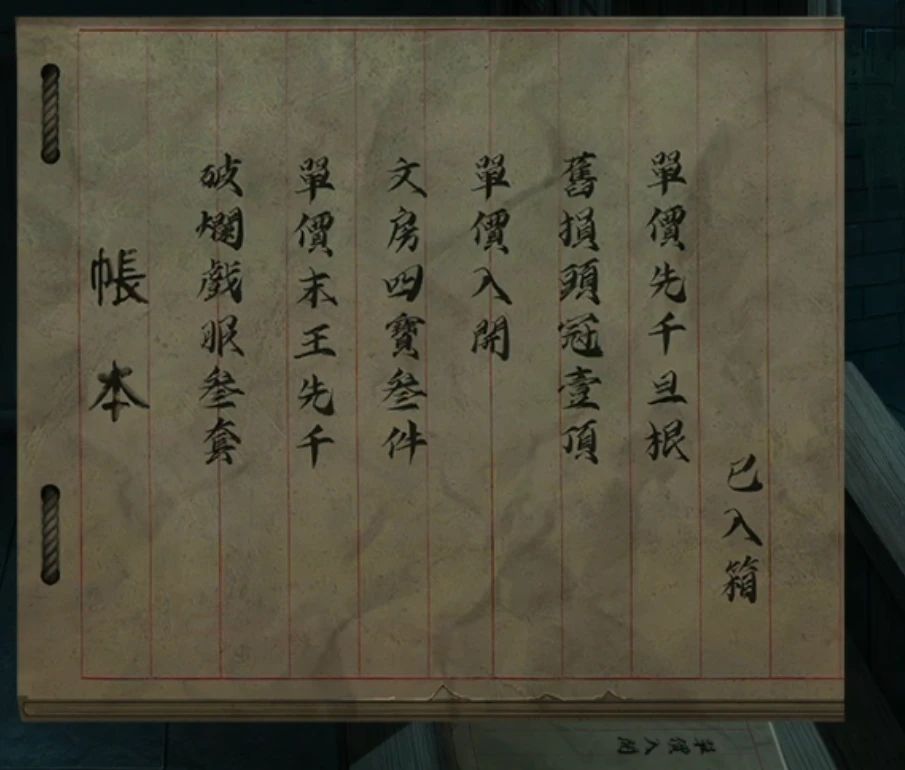 帳本
破爛戯服叁套
單價末王先千
文房四寶叁件
單價入開
舊損頭冠壹頂
單價先千旦根
已入箱
單價入開